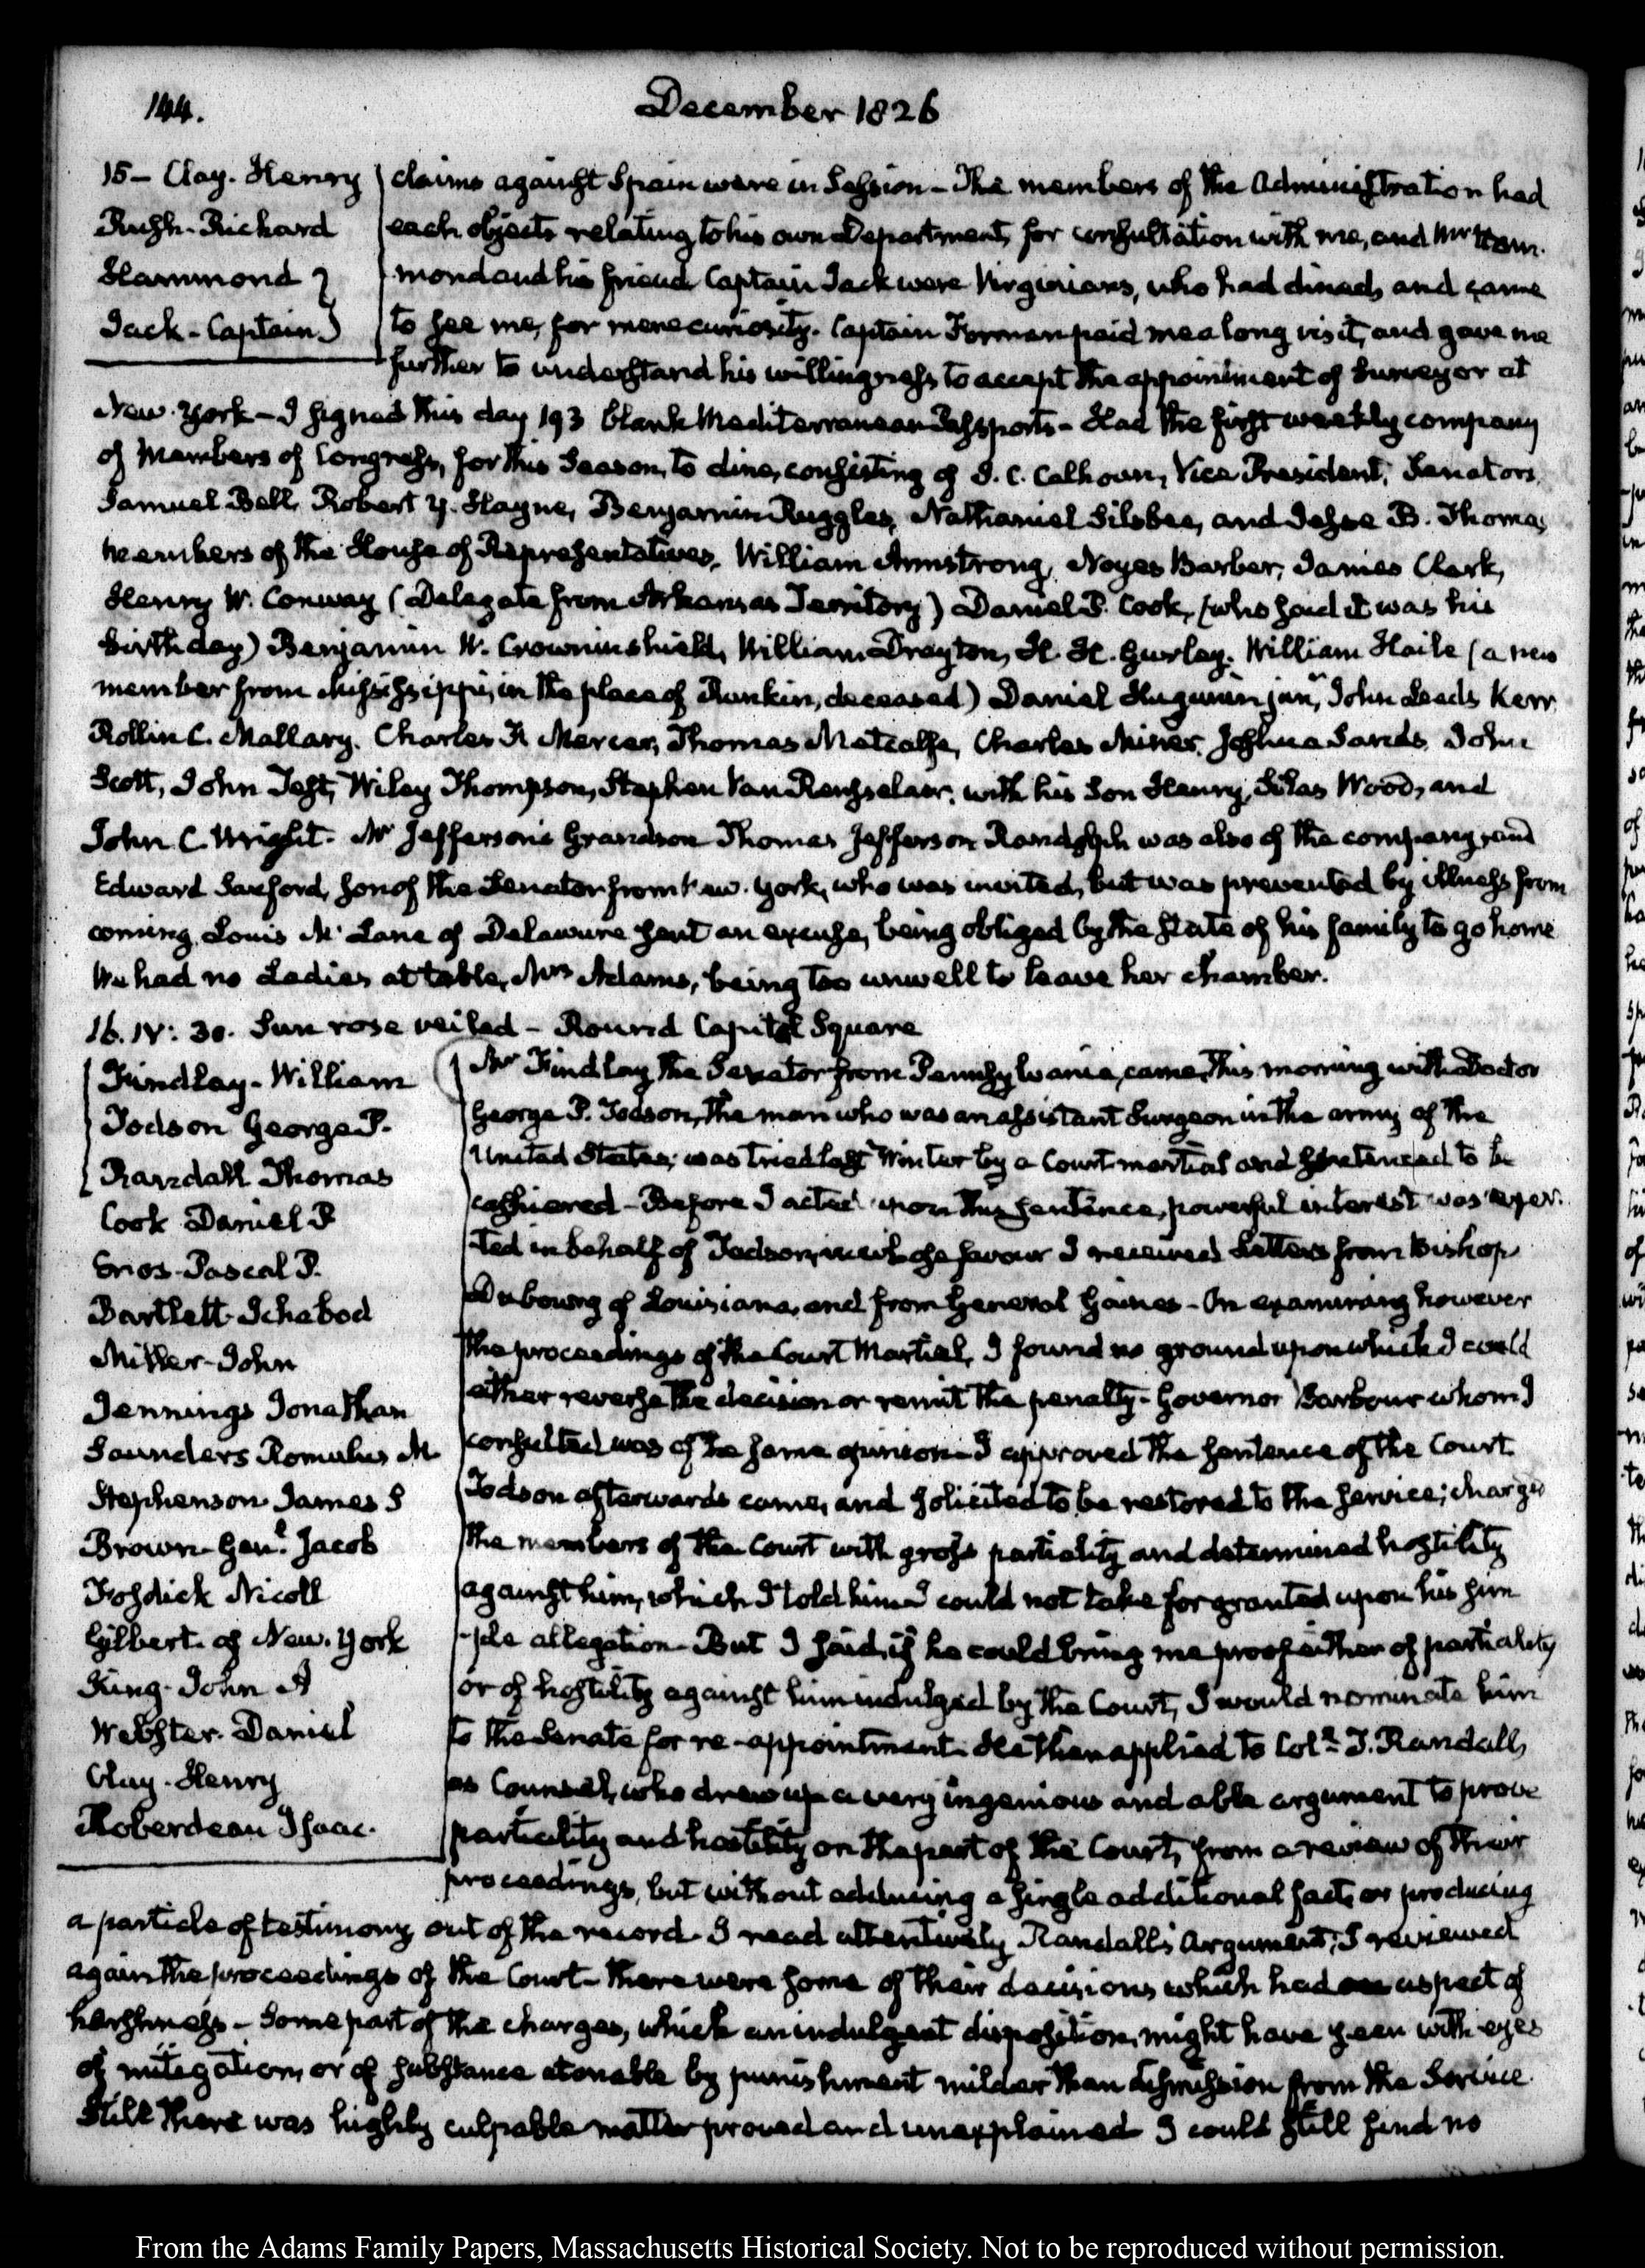 144.
December 1826
15 - Clay. Henry
Rush. Richard
Hammond }
Jack - Captain }
claims against Spain were in Session - The members of the Administration had
each objects relating to his own Department, for consultation with me, and Mr Ham-
mond and his friend Captain Jack were Virginians, who had dined, and came
to see me, for mere curiosity. Captain Forman paid me a long visit, and gave me
further to understand his willingness to accept the appointment of Surveyor at
New-York - I signed this day 193 blank Mediterranean Passports - Had the first weekly company
of Members of Congress, for this Season, to dine, consisting of J. C. Calhoun, Vice-President, Senators
Samuel Bell, Robert Y. Hayne, Benjamin Ruggles, Nathaniel Silsbee, and Jesse B. Thomas,
members of the House of Representatives, William Armstrong, Noyes Barber, James Clark,
Henry W. Conway (Delegate from Arkansas Territory) Daniel P. Cook, (who said it was his
birth day) Benjamin W. Crowninshield, William Drayton, H. H. Gurley. William Haile (a new
member from Mississippi, in the place of Rankin, deceased) Daniel Hugunin junr, John Leeds Kerr
Rollin C. Mallary. Charles F. Mercer, Thomas Metcalfe, Charles Miner, Joshua Sands, John
Scott, John Test, Wiley Thompson, Stephen Van Rensselaer, with his Son Henry, Silas Wood, and
John C. Wright. Mr Jefferson's Grandson Thomas Jefferson Randolph was also of the company, and
Edward Sanford, son of the Senator from New-York, who was invited, but was prevented by illness from
coming. Louis Mc Lane of Delaware sent an excuse, being obliged by the state of his family to go home
We had no Ladies at table, Mrs Adams, being too unwell to leave her chamber.
16. IV: 30. Sun rose veiled - Round Capitol Square
Findlay - William
Todson George P.
Randall Thomas
Cook Daniel P
Enos - Pascal P.
Bartlett - Ichabod
Miller - John
Jennings Jonathan
Saunders Romulus M
Stephenson James S
Brown - Genl. Jacob
Fosdick Nicoll
Gilbert of New-York
King - John A
Webster - Daniel
Clay - Henry
Roberdeau Isaac.
Mr Findlay the Senator from Pennsylvania, came this morning with Doctor
George P. Todson, the man who was an assistant Surgeon in the army of the
United States; was tried last Winter by a Court-martial and sentenced to be
cashiered - Before I acted upon this sentence, powerful interest was exer-
ted in behalf of Todson, in whose favour I received Letters from Bishop
Dubourg of Louisiana, and from General Gaines - On examining however
the proceedings of the Court Martial, I found no ground upon which I could
either reverse the decision or remit the penalty - Governor Barbour whom I
consulted was of the same opinion - I approved the sentence of the Court
Todson afterwards came, and solicited to be restored to the service; charged
the members of the Court with gross partiality and determined hostility
against him, which I told him I could not take for granted upon his sim
-ple allegation - But I said, if he could bring me proof either of partiality
or of hostility against him indulged by the Court, I would nominate him
to the Senate for re-appointment. He then applied to Coll. T. Randall,
as Counsel, who drew up a very ingenious and able argument to prove
partiality and hostility on the part of the Court, from a review of their
proceedings, but without adducing a single additional fact, or producing
a particle of testimony out of the record. I read attentively Randall's Argument; I reviewed
again the proceedings of the Court - there were some of their decisions which had an aspect of
harshness - Some part of the charges, which an indulgent disposition, might have seen with eyes
of mitigation, or of substance atonable by punishment milder than dismission from the Service.
Still there was highly culpable matter proved and unexplained I could still find no
From the Adams Family Papers, Massachusetts Historical Society. Not to be reproduced without permission.